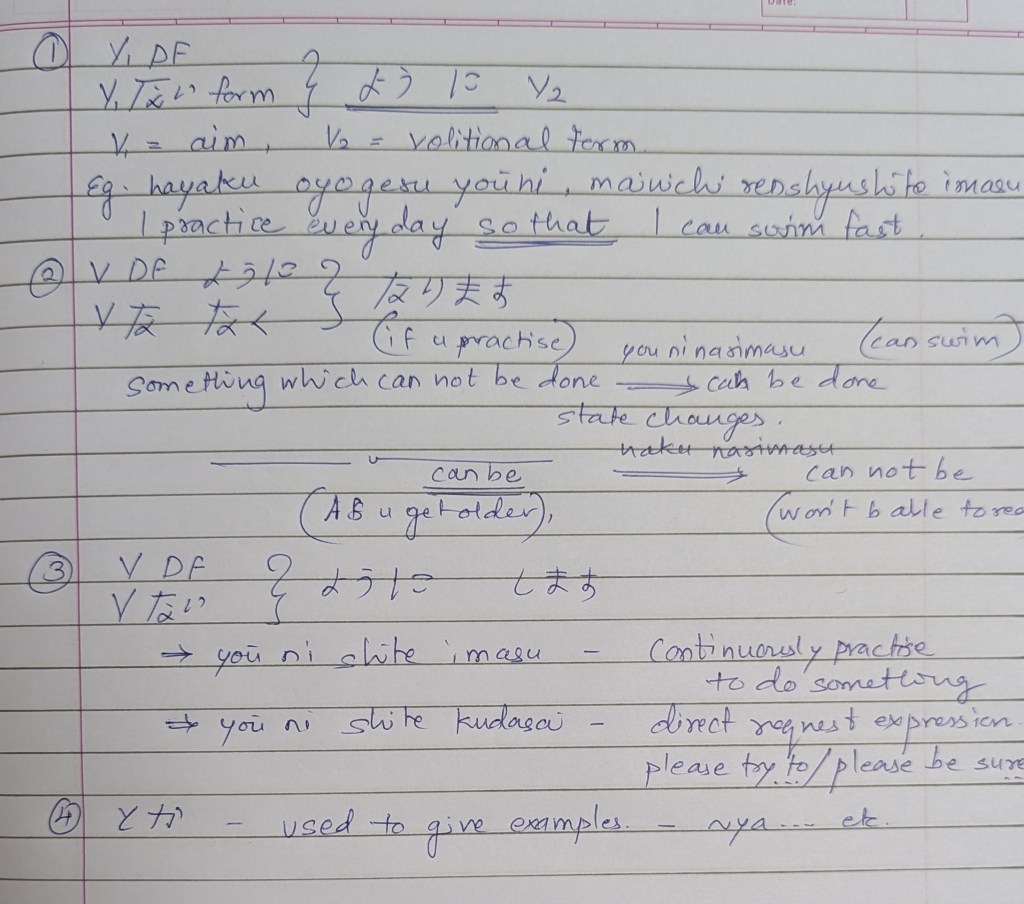 Date:
① V₁ DF
V₁ ない form } ように V₂
V₁ = aim, V₂ = volitional form.
Eg. hayaku oyogeru youni, mainichi renshyushite imasu
I practice every day so that I can swim fast.
② V DF ように
V な なく } なります
(if u practise) you ni narimasu (can swim)
something which can not be done → can be done
state changes.
naku narimasu
can be → can not be
(As u get older), (won't b able to rea
③ V DF
V ない } ように します
→ you ni shite imasu – Continuously practise
to do something
→ you ni shite kudasai – direct request expression.
please try to / please be sure
④ とか – used to give examples. – ~ya .... etc.